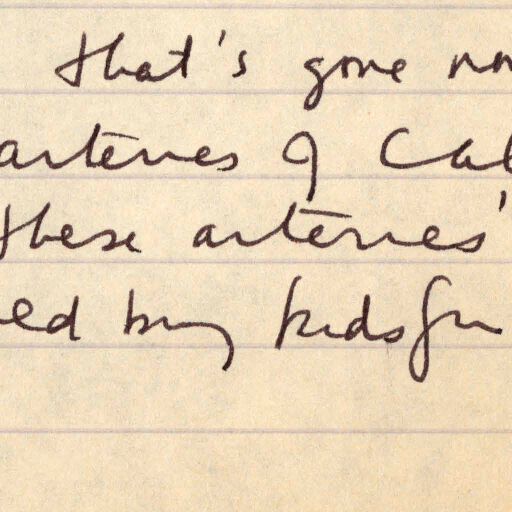 that's gone
arteries of Cal
these arteries'
ed bring kids